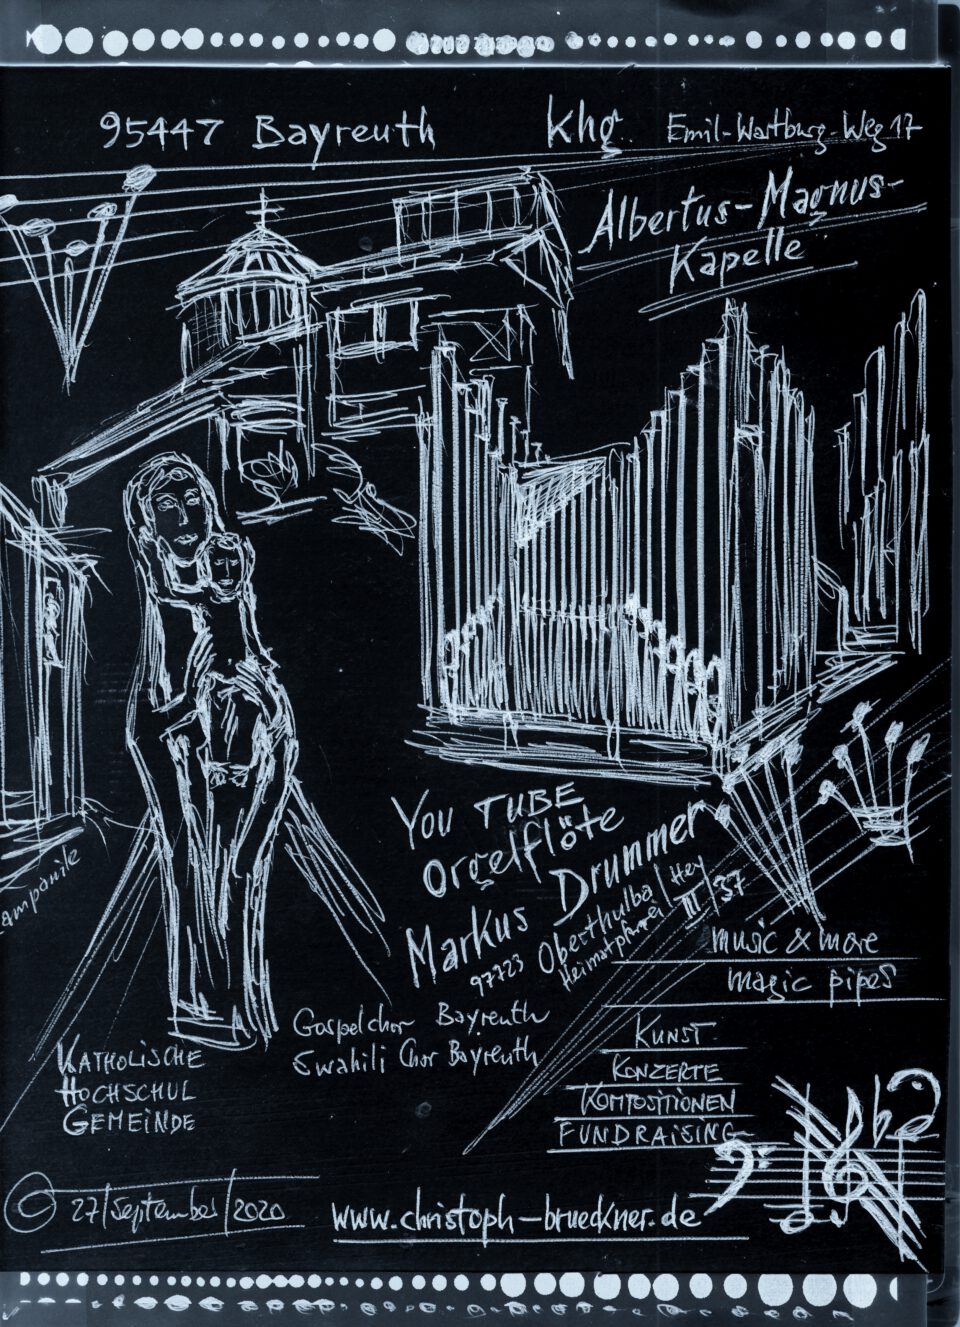 95447 Bayreuth khg. Emil-Wartburg-Weg 17
Albertus-Magnus-
Kapelle
YOU TUBE
Orgelflöte
Markus Drummer
97723 Oberthulba
Heimatpfarrei
Hey
III/37
ampanile
music & more
magic pipes
Gospelchor Bayreuth
Swahili Chor Bayreuth
KATHOLISCHE
HOCHSCHUL
GEMEINDE
KUNST
KONZERTE
KOMPOSITIONEN
FUNDRAISING
© 27/September/2020
www.christoph-brueckner.de